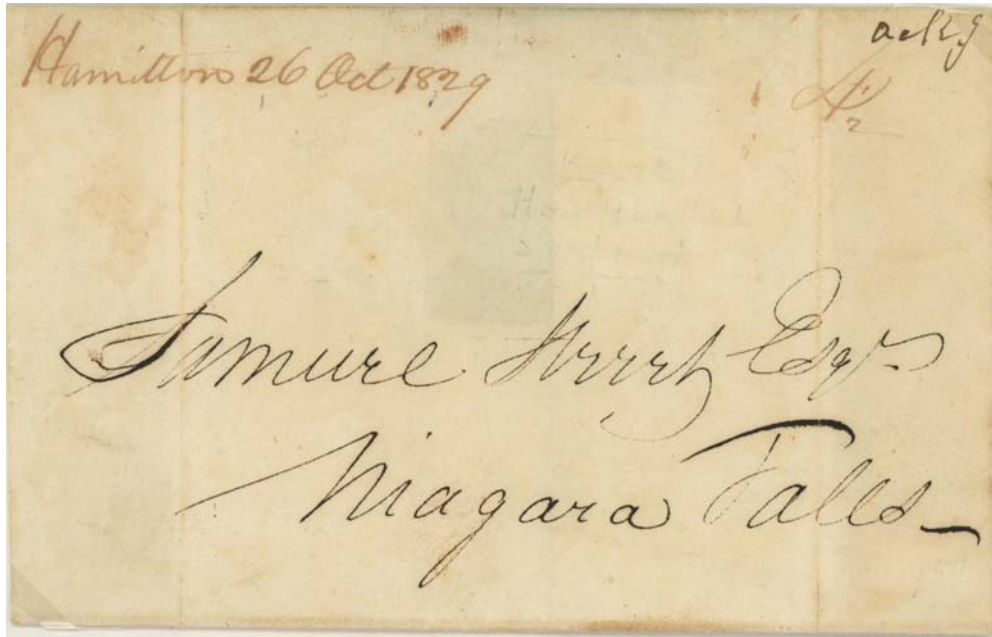 ackg
Hamilton 26 Oct 1829
4 1/2
Samuel Street Esqr
Niagara Falls